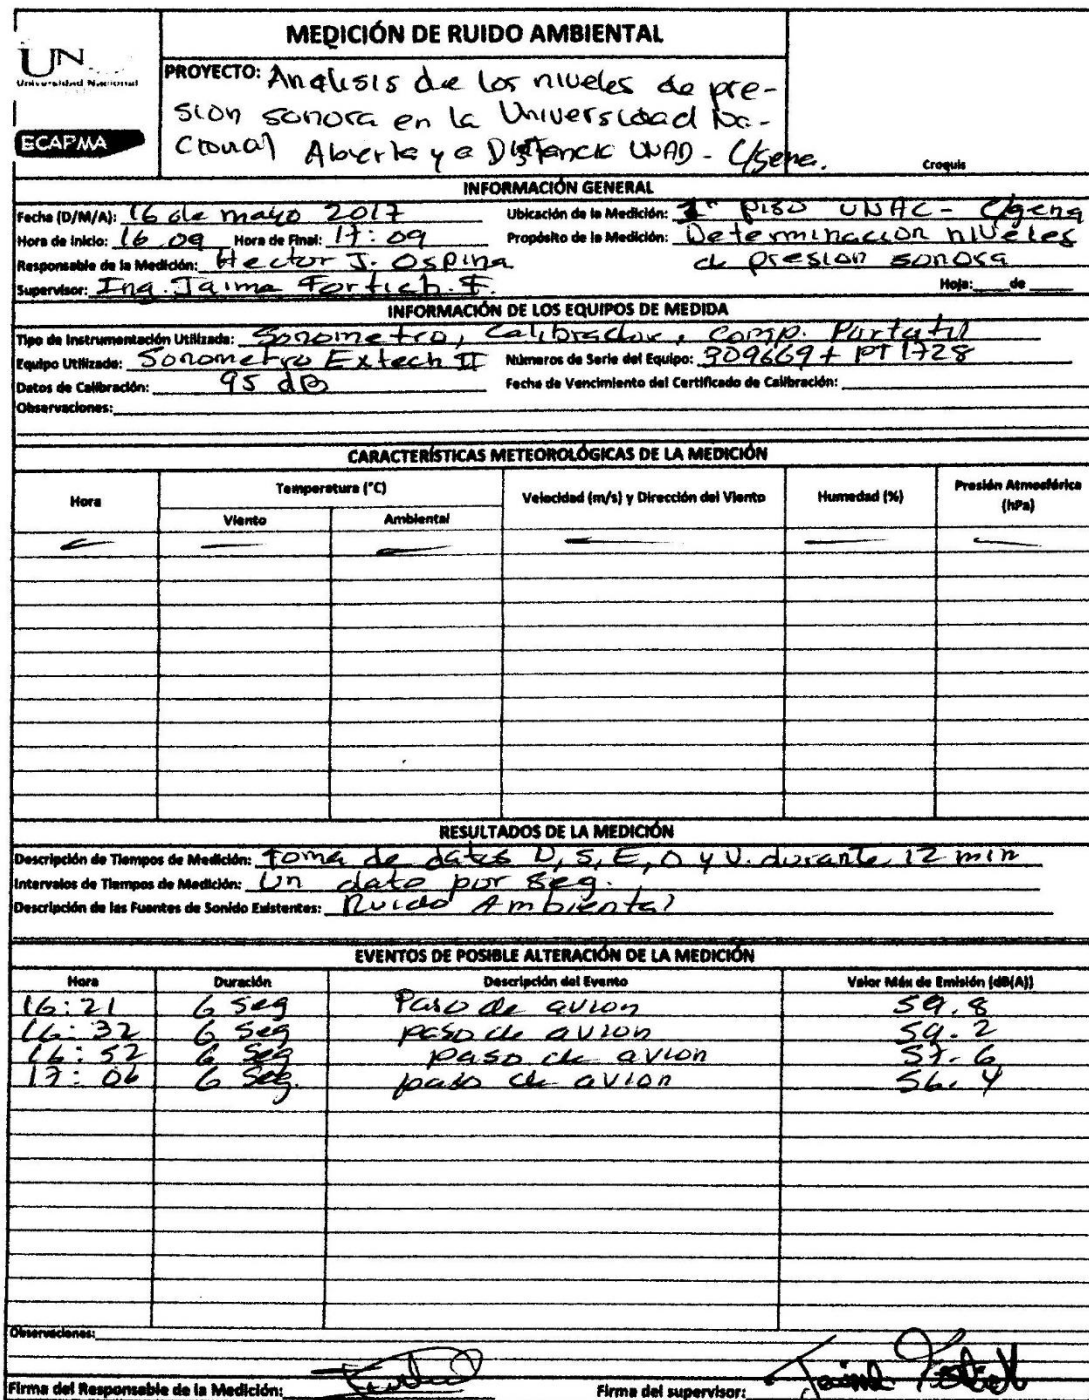 UN
Universidad Nacional
ECAPMA
MEDICIÓN DE RUIDO AMBIENTAL
PROYECTO: Analisis de los niveles de pre-
sion sonora en la Universidad Na-
cional Abierta y a Distancia UNAD - C/gena.
Croquis
INFORMACIÓN GENERAL
Fecha (D/M/A): 16 de mayo 2017 Ubicación de la Medición: piso UNAC - C/gena
Hora de Inicio: 16.09 Hora de Final: 17:09 Propósito de la Medición: Determinacion niveles
Responsable de la Medición: Hector J. Ospina de presion sonora
Supervisor: Ing. Jaime Fortich. F. Hoja: de
INFORMACIÓN DE LOS EQUIPOS DE MEDIDA
Tipo de Instrumentación Utilizada: Sonometro, Calibrador, comp. Portatil
Equipo Utilizado: Sonometro Extech II Números de Serie del Equipo: PT 1728
Datos de Calibración: 95 dB Fecha de Vencimiento del Certificado de Calibración:
Observaciones:
CARACTERÍSTICAS METEOROLÓGICAS DE LA MEDICIÓN
Hora Temperatura (°C) Velocidad (m/s) y Dirección del Viento Humedad (%) Presión Atmosférica (hPa)
Viento Ambiental
RESULTADOS DE LA MEDICIÓN
Descripción de Tiempos de Medición: Toma de datos D, S, E, O y V. durante 12 min
Intervalos de Tiempos de Medición: Un dato por seg.
Descripción de las Fuentes de Sonido Existentes: Ruido Ambiental
EVENTOS DE POSIBLE ALTERACIÓN DE LA MEDICIÓN
Hora Duración Descripción del Evento Valor Máx de Emisión (dB(A))
16:21 6 Seg Paso de avion 59.8
16:32 6 Seg paso de avion 59.2
16:52 6 Seg paso de avion 57.6
17:06 6 Seg. paso de avion 56.4
Observaciones:
Firma del Responsable de la Medición: Firma del supervisor: